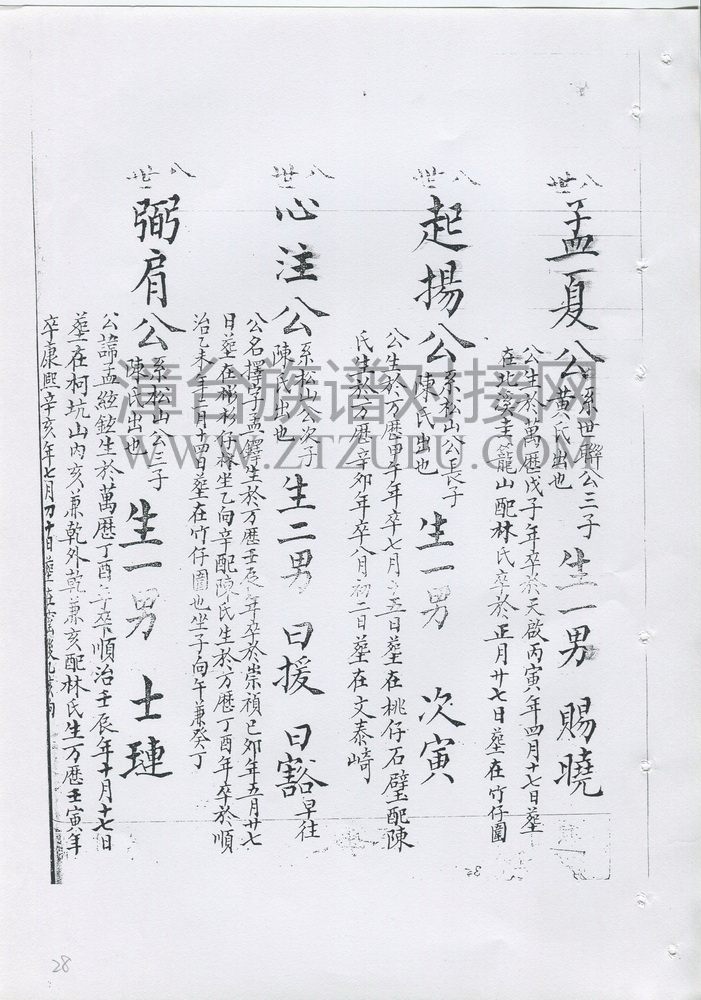 八世
孟夏公
系世聯公三子
黄氏出也
生一男 賜曉
公生於萬歷戊子年卒於天啟丙寅年四月十七日塟
在北 籠山配林氏卒於正月廿七日塟在竹仔園
八世
起揚公
系松山公長子
陳氏出也
生一男 次寅
公生於万歷甲午年卒七月 五日塟在桃仔石壁配陳
氏生於万歷辛卯年卒八月初二日塟在文泰崎
八世
心注公
系松山公次子
陳氏出也
生二男 曰援 曰豁
早往
公名擇字孟鐸生於万歷壬辰年卒於崇禎己卯年五月廿七
日塟在彬杉仔林坐乙向辛配陳氏生於万歷丁酉年卒於順
治乙未年二月十四日塟在竹仔園也坐子向午兼癸丁
八世
弼肩公
系松山公三子
陳氏出也
生一男 士璉
公諱孟絃 生於萬歷丁酉年卒順治壬辰年十月十七日
塟在柯坑山内亥兼乾外乾兼亥配林氏生万歷壬寅年
卒康熙辛亥年七月初十日塟在
漳台族谱对接网
WWW.ZTZUPU.COM
28
28